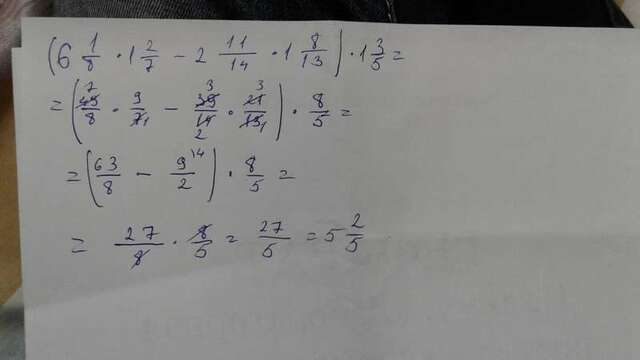 (6 1/8 · 1 2/7 - 2 11/14 · 1 8/13) · 1 3/5 =
= (49 7/8 · 9/7 - 39 3/14 2 · 21 3/13) · 8/5 =
= (63/8 - 9 \4/2) · 8/5 =
= 27/8 · 8/5 = 27/5 = 5 2/5